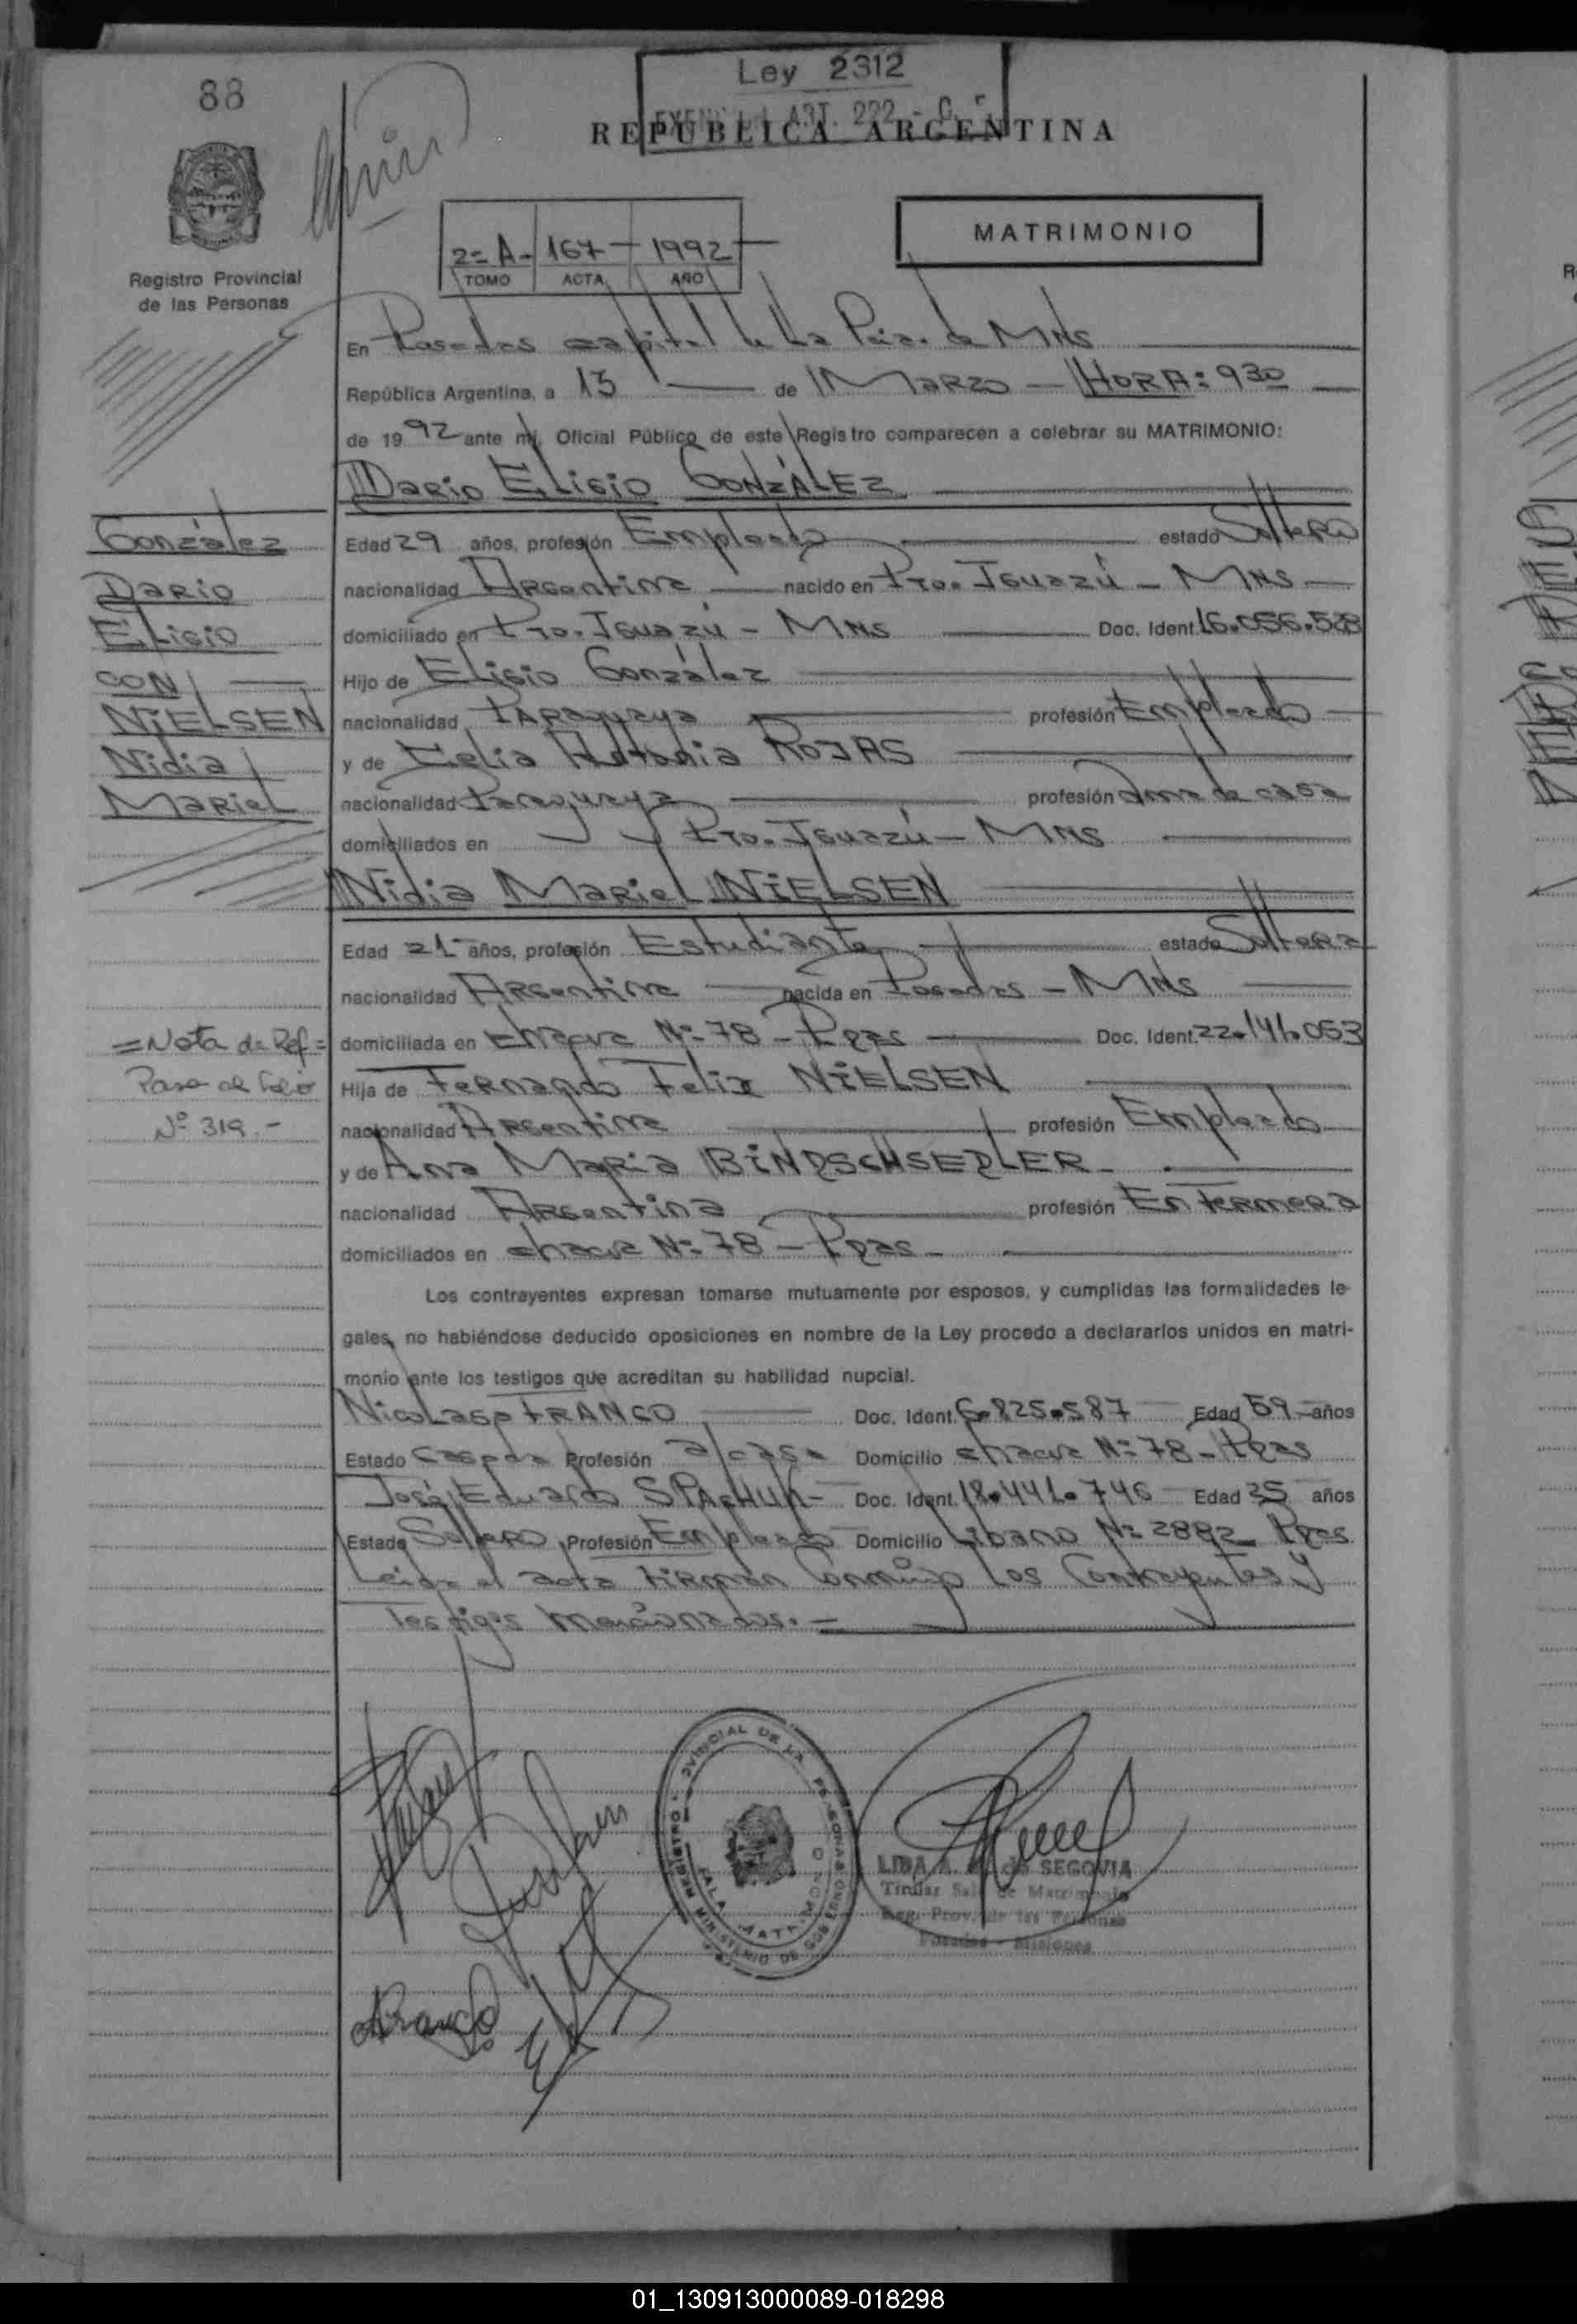 88
Ley 2312
ART. 222 - C.
REPUBLICA ARGENTINA
MATRIMONIO
2= A - 167 - 1992 -
TOMO ACTA AÑO
Registro Provincial
de las Personas
En Posadas capital de La Pcia. de MNS
República Argentina, a 13 de Marzo - HORA: 930
de 1992 ante mí, Oficial Público de este Registro comparecen a celebrar su MATRIMONIO:
Dario Elisio GONZÁLEZ
González
Dario
Elisio
CON
NIELSEN
Nidia
Mariel
Edad 29 años, profesión Empleado estado Soltero
nacionalidad Argentina nacido en Pto. Iguazú - MNS
domiciliado en Pto. Iguazú - MNS Doc. Ident. 16.056.528
Hijo de Elisio González
nacionalidad Paraguaya profesión Empleado
y de Antonia ROJAS
nacionalidad Paraguaya profesión ama de casa
domiciliados en Pto. Iguazú - MNS
Nidia Mariel NIELSEN
Edad 21 años, profesión Estudiante estado Soltera
nacionalidad Argentina nacida en Posadas - MNS
domiciliada en chacra Nº 78 - Pdas Doc. Ident. 22.141.053
Hija de Fernando Felix NIELSEN
nacionalidad Argentina profesión Empleado
y de Ana Maria BINDSCHSEDLER
nacionalidad Argentina profesión Enfermera
domiciliados en chacra Nº 78 - Pdas -
= Nota de Ref =
Pasa al folio
Nº 319.-
Los contrayentes expresan tomarse mutuamente por esposos, y cumplidas las formalidades le-
gales, no habiéndose deducido oposiciones en nombre de la Ley procedo a declararlos unidos en matri-
monio ante los testigos que acreditan su habilidad nupcial.
Nicolasa FRANCO Doc. Ident. 6.825.587 Edad 59 - años
Estado Casada Profesión a/casa Domicilio chacra Nº 78 - Pdas
José Eduardo SPACHUK - Doc. Ident. 18.441.746 Edad 25 años
Estado Soltero Profesión Empleado Domicilio Libano Nº 2892 Pdas
Leida el acta firman conmigo los Contrayentes y
Testigos mencionados. -
REGISTRO PROVINCIAL DE LAS PERSONAS
MINISTERIO DE GOBIERNO
SALA MATRIMONIO
LIDA A. de SEGOVIA
Titular Sala de Matrimonio
Reg. Prov. de las Personas
Posadas - Misiones
Franco
01_130913000089-018298